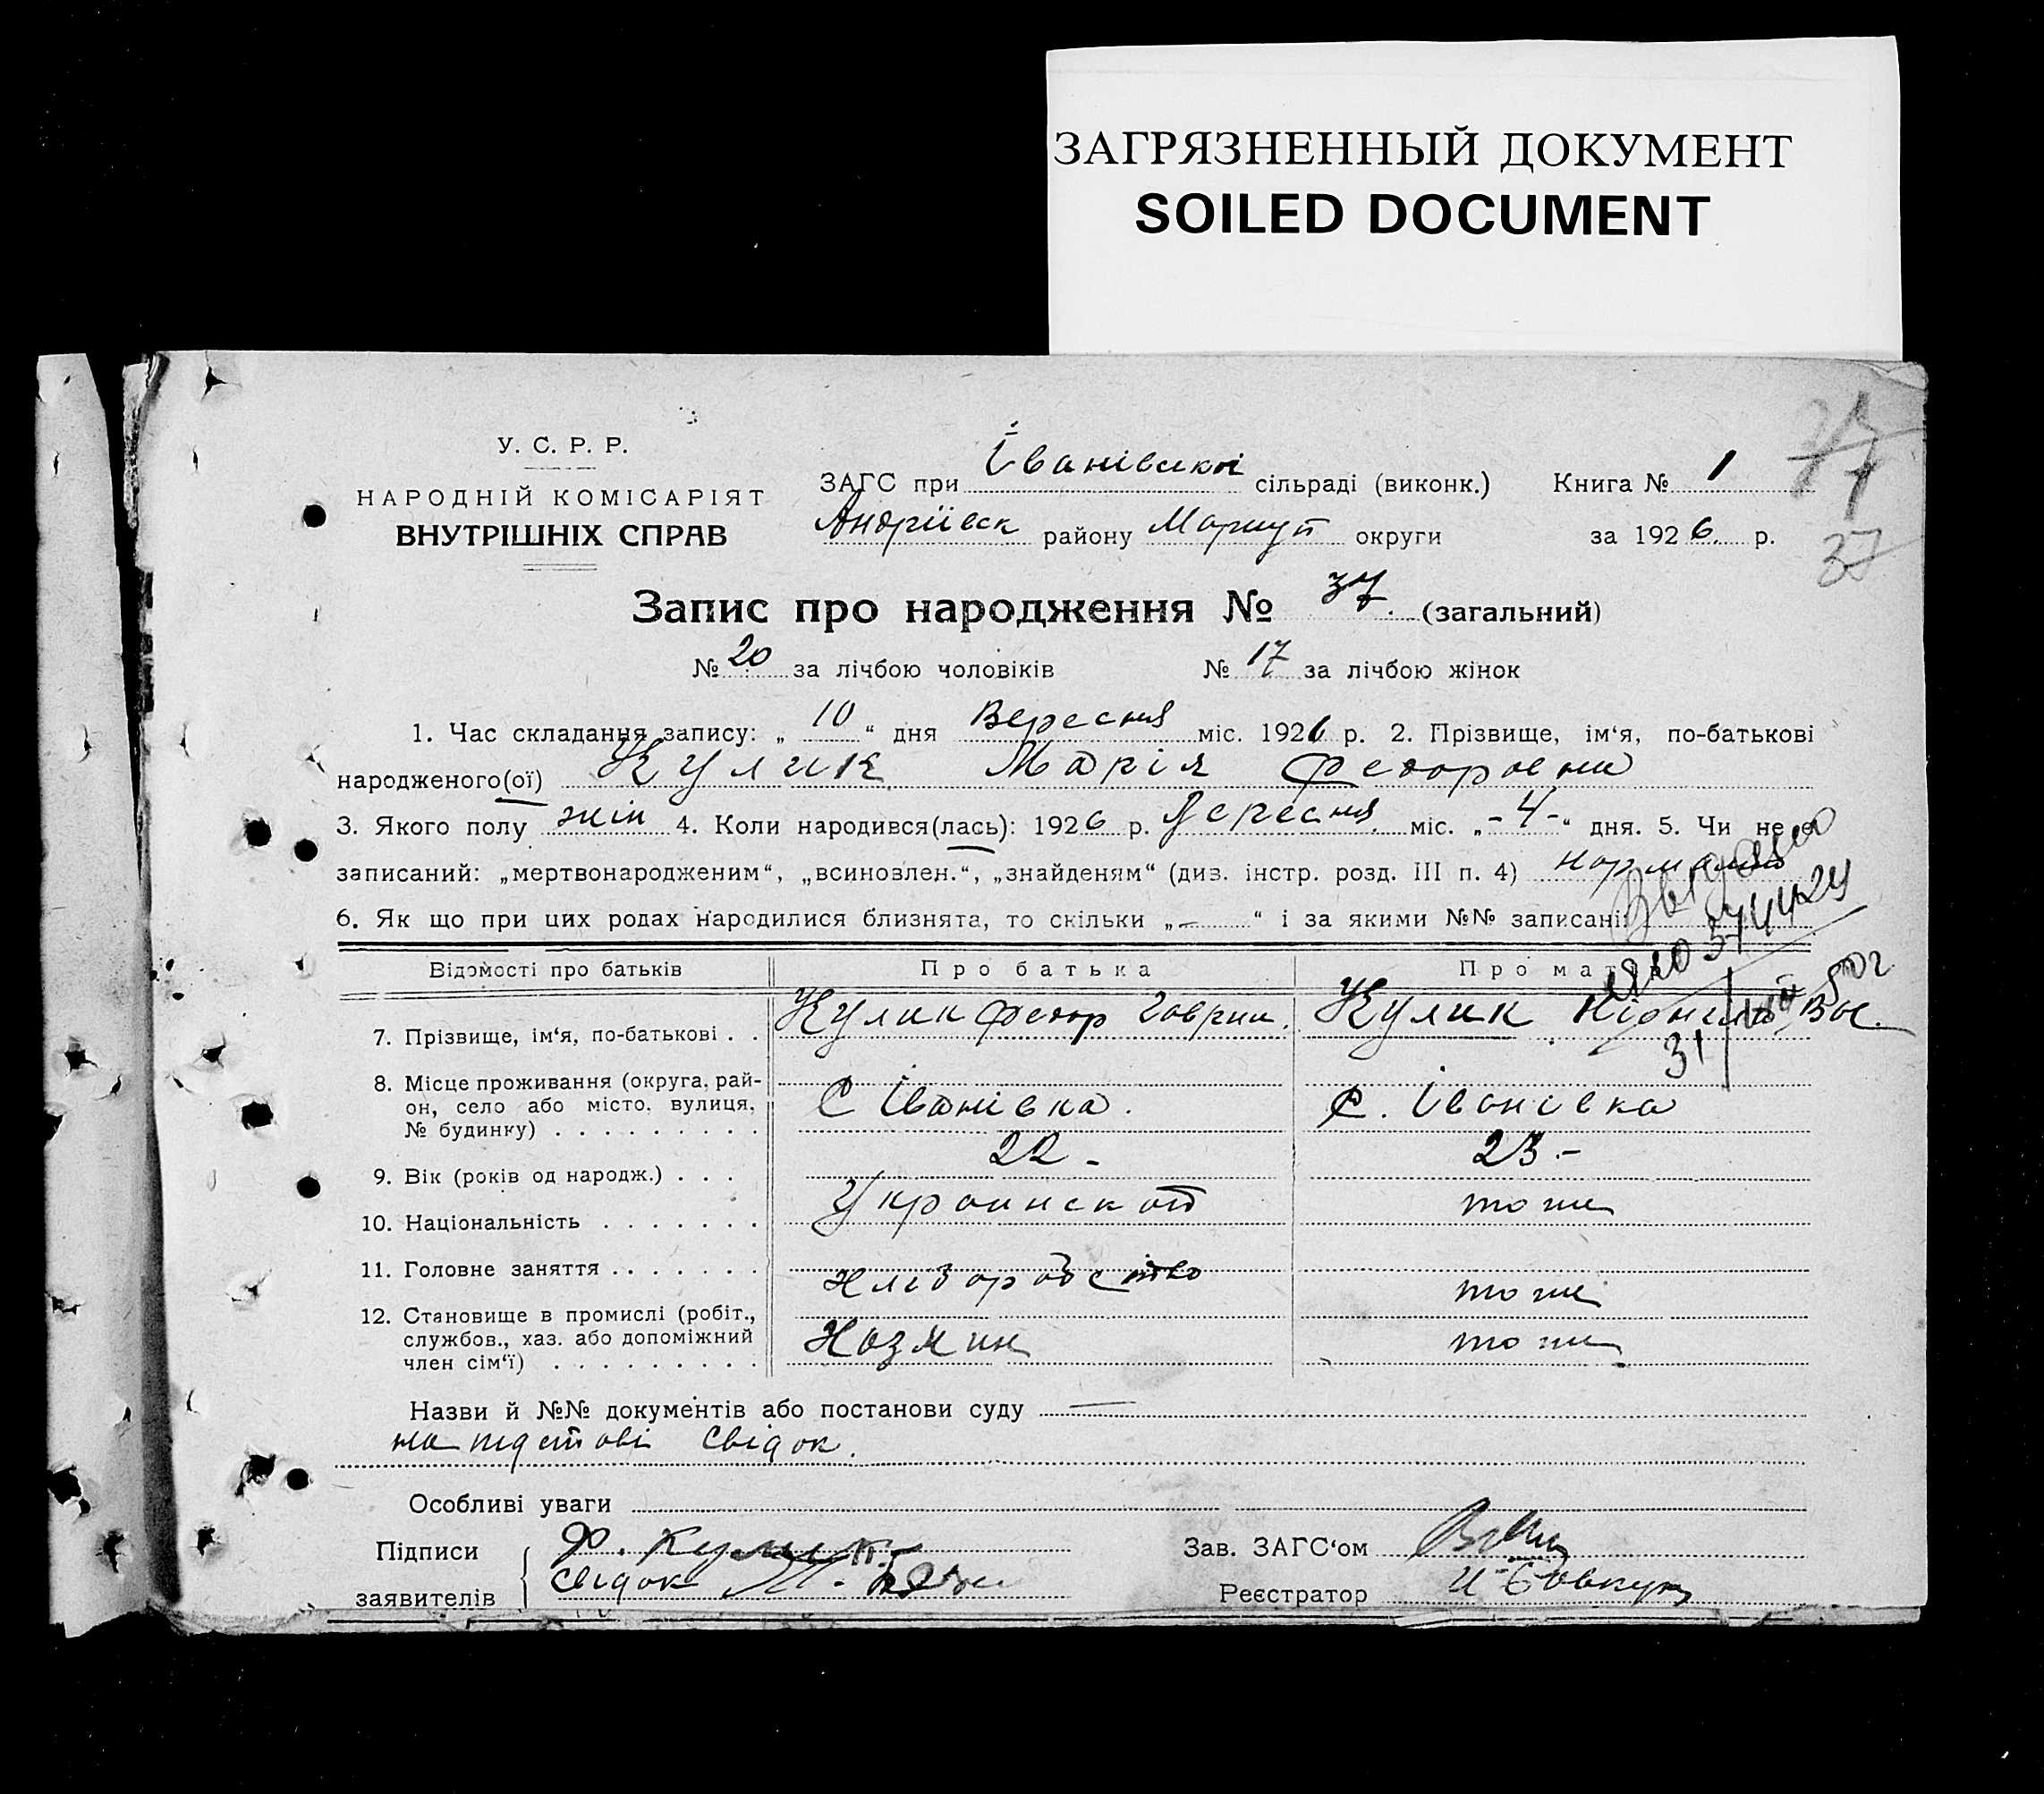 ЗАГРЯЗНЕННЫЙ ДОКУМЕНТ
SOILED DOCUMENT
У. С. Р. Р.
НАРОДНІЙ КОМІСАРІЯТ
ВНУТРІШНІХ СПРАВ
ЗАГС при Іванівській сільраді (виконк.) Книга № 1
Андріївск району Маріуп округи за 1926 р.
37
Запис про народження № 37. (загальний)
№ 20 за лічбою чоловіків № 17 за лічбою жінок
1. Час складання запису: „ 10 “ дня Вересня міс. 1926 р. 2. Прізвище, ім‘я, по-батькові
народженого(ої) Кулик Марія Федоровна
3. Якого полу жін 4. Коли народився(лась): 1926 р. Вересня міс. „-4-“ дня. 5. Чи не є
записаний: „мертвонародженим“, „всиновлен.“, „знайденям“ (див. інстр. розд. III п. 4) нормально
6. Як що при цих родах народилися близнята, то скільки „—“ і за якими №№ записані:
Відомості про батьків Про батька Про матір
7. Прізвище, ім‘я, по-батькові . . Кулик Федор Гаврил. Кулик Вас.
8. Місце проживання (округа, рай-
он, село або місто, вулиця, С Іванівка. С. Іванівка
№ будинку) . . . . . . . . .
9. Вік (років од народж.) . . . 22 - 23.-
10. Національність . . . . . . . Украинской тоже
11. Головне заняття . . . . . . . хліборобство тоже
12. Становище в промислі (робіт.,
службов., хаз. або допоміжний Хозяин тоже
член сім‘ї) . . . . . . . . .
Назви й №№ документів або постанови суду —
на підставі свідок.
Особливі уваги
Підписи Ф. Кулик Зав. ЗАГС‘ом
заявителів свідок М. Реєстратор